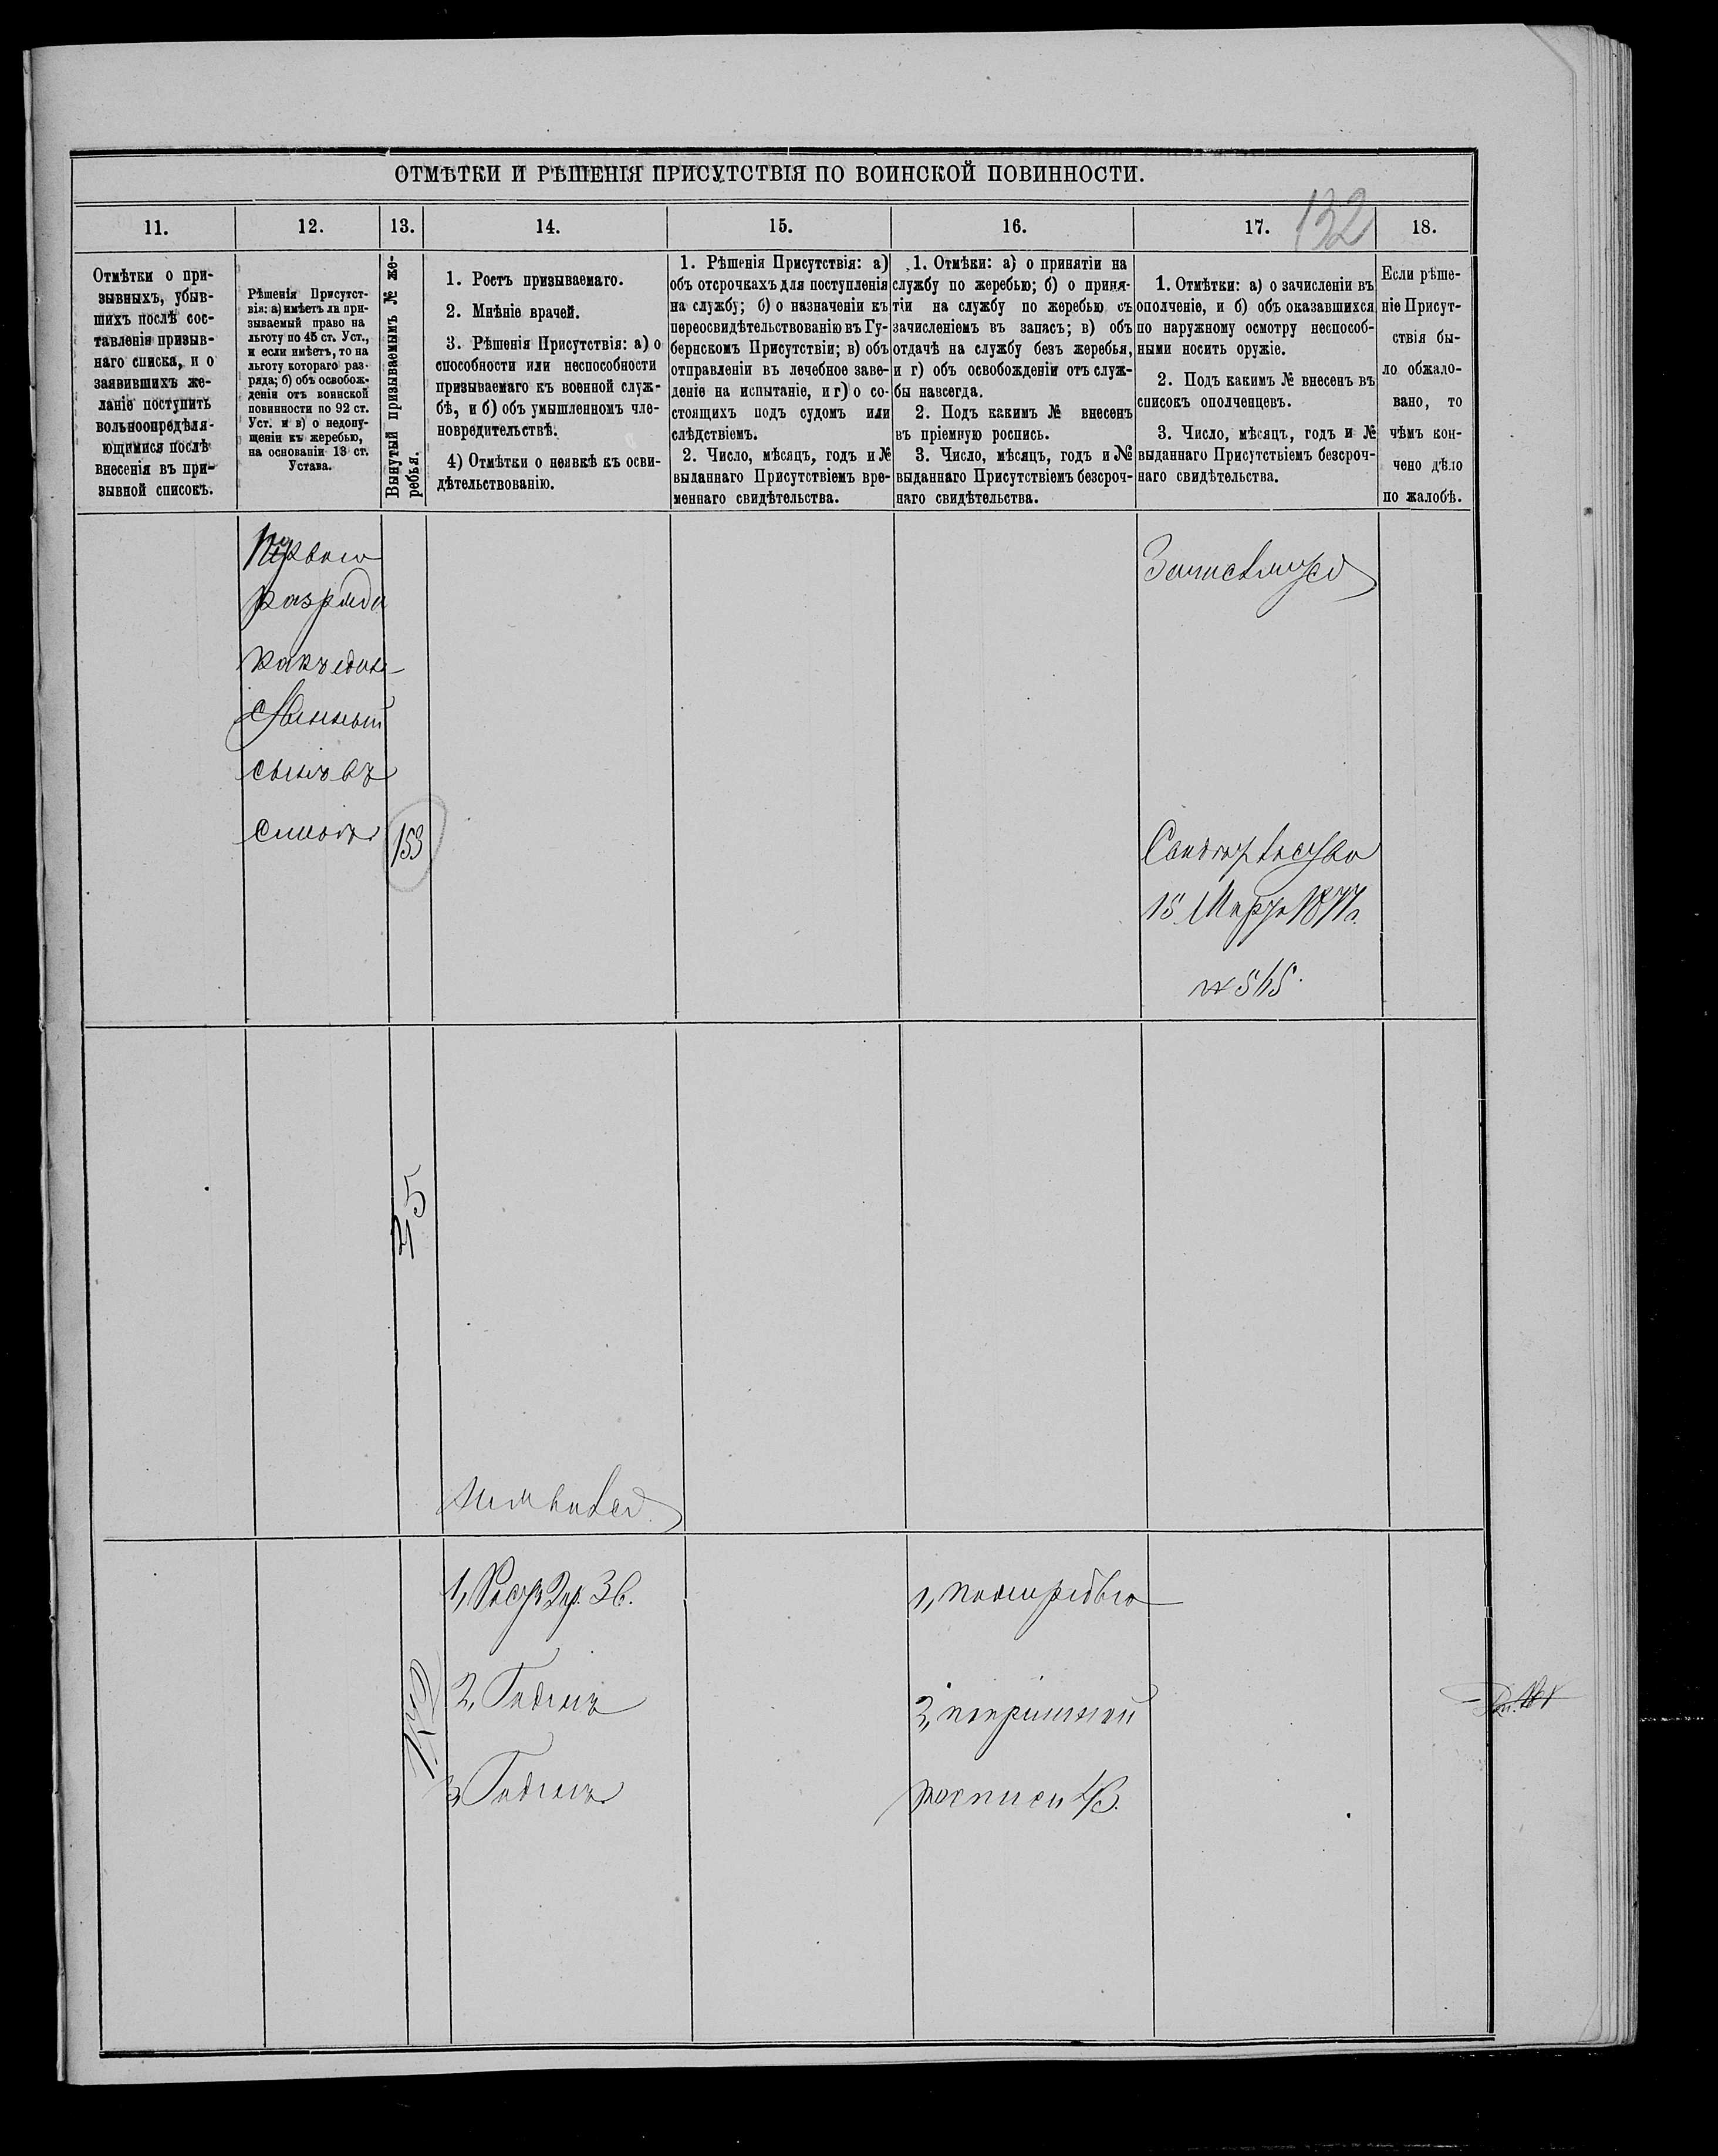 ОТМѢТКИ И РѢШЕНІЯ ПРИСУТСТВІЯ ПО ВОИНСКОЙ ПОВИННОСТИ.
132
11.
12.
13.
14.
15.
16.
17.
18.
Отмѣтки о при-
зывныхъ, убыв-
шихъ послѣ сос-
тавленія призыв-
наго списка, и о
заявившихъ же-
ланіе поступить
вольноопредѣля-
ющимися послѣ
внесенія въ при-
зывной списокъ.
Рѣшенія Присутст-
вія: а) имѣетъ ли при-
зываемый право на
льготу по 45 ст. Уст.,
и если имѣетъ, то на
льготу котораго раз-
ряда; б) объ освобож-
деніи отъ воинской
повинности по 92 ст.
Уст. и в) о недопу-
щеніи къ жеребью,
на основаніи 13 ст.
Устава.
Вынутый призываемымъ № же-
ребья.
1. Ростъ призываемаго.
2. Мнѣніе врачей.
3. Рѣшенія Присутствія: а) о
способности или неспособности
призываемаго къ военной служ-
бѣ, и б) объ умышленномъ чле-
новредительствѣ.
4) Отмѣтки о неявкѣ къ осви-
дѣтельствованію.
1. Рѣшенія Присутствія: а)
объ отсрочкахъ для поступленія
на службу; б) о назначеніи къ
переосвидѣтельствованію въ Гу-
бернскомъ Присутствіи; в) объ
отправленіи въ лечебное заве-
деніе на испытаніе, и г) о со-
стоящихъ подъ судомъ или
слѣдствіемъ.
2. Число, мѣсяцъ, годъ и №
выданнаго Присутствіемъ вре-
меннаго свидѣтельства.
1. Отмѣки: а) о принятіи на
службу по жеребью; б) о приня-
тіи на службу по жеребью съ
зачисленіемъ въ запасъ; в) объ
отдачѣ на службу безъ жеребья,
и г) объ освобожденіи отъ служ-
бы навсегда.
2. Подъ какимъ № внесенъ
въ пріемную роспись.
3. Число, мѣсяцъ, годъ и №
выданнаго Присутствіемъ безсроч-
наго свидѣтельства.
1. Отмѣтки: а) о зачисленіи въ
ополченіе, и б) объ оказавшихся
по наружному осмотру неспособ-
ными носить оружіе.
2. Подъ какимъ № внесенъ въ
списокъ ополченцевъ.
3. Число, мѣсяцъ, годъ и №
выданнаго Присутствіемъ безсроч-
наго свидѣтельства.
Если рѣше-
ніе Присут-
ствія бы-
ло обжало-
вано, то
чѣмъ кон-
чено дѣло
по жалобѣ.
Перваго
разряда
какъ един
ственный
сынъ въ
семьѣ
153
15 Марта 1877 г.
№ 515
25
1, Ростъ 2 ар. 3 в.
2, Годенъ
3, Годенъ
1, по жеребью
2, по пріемной
росписи